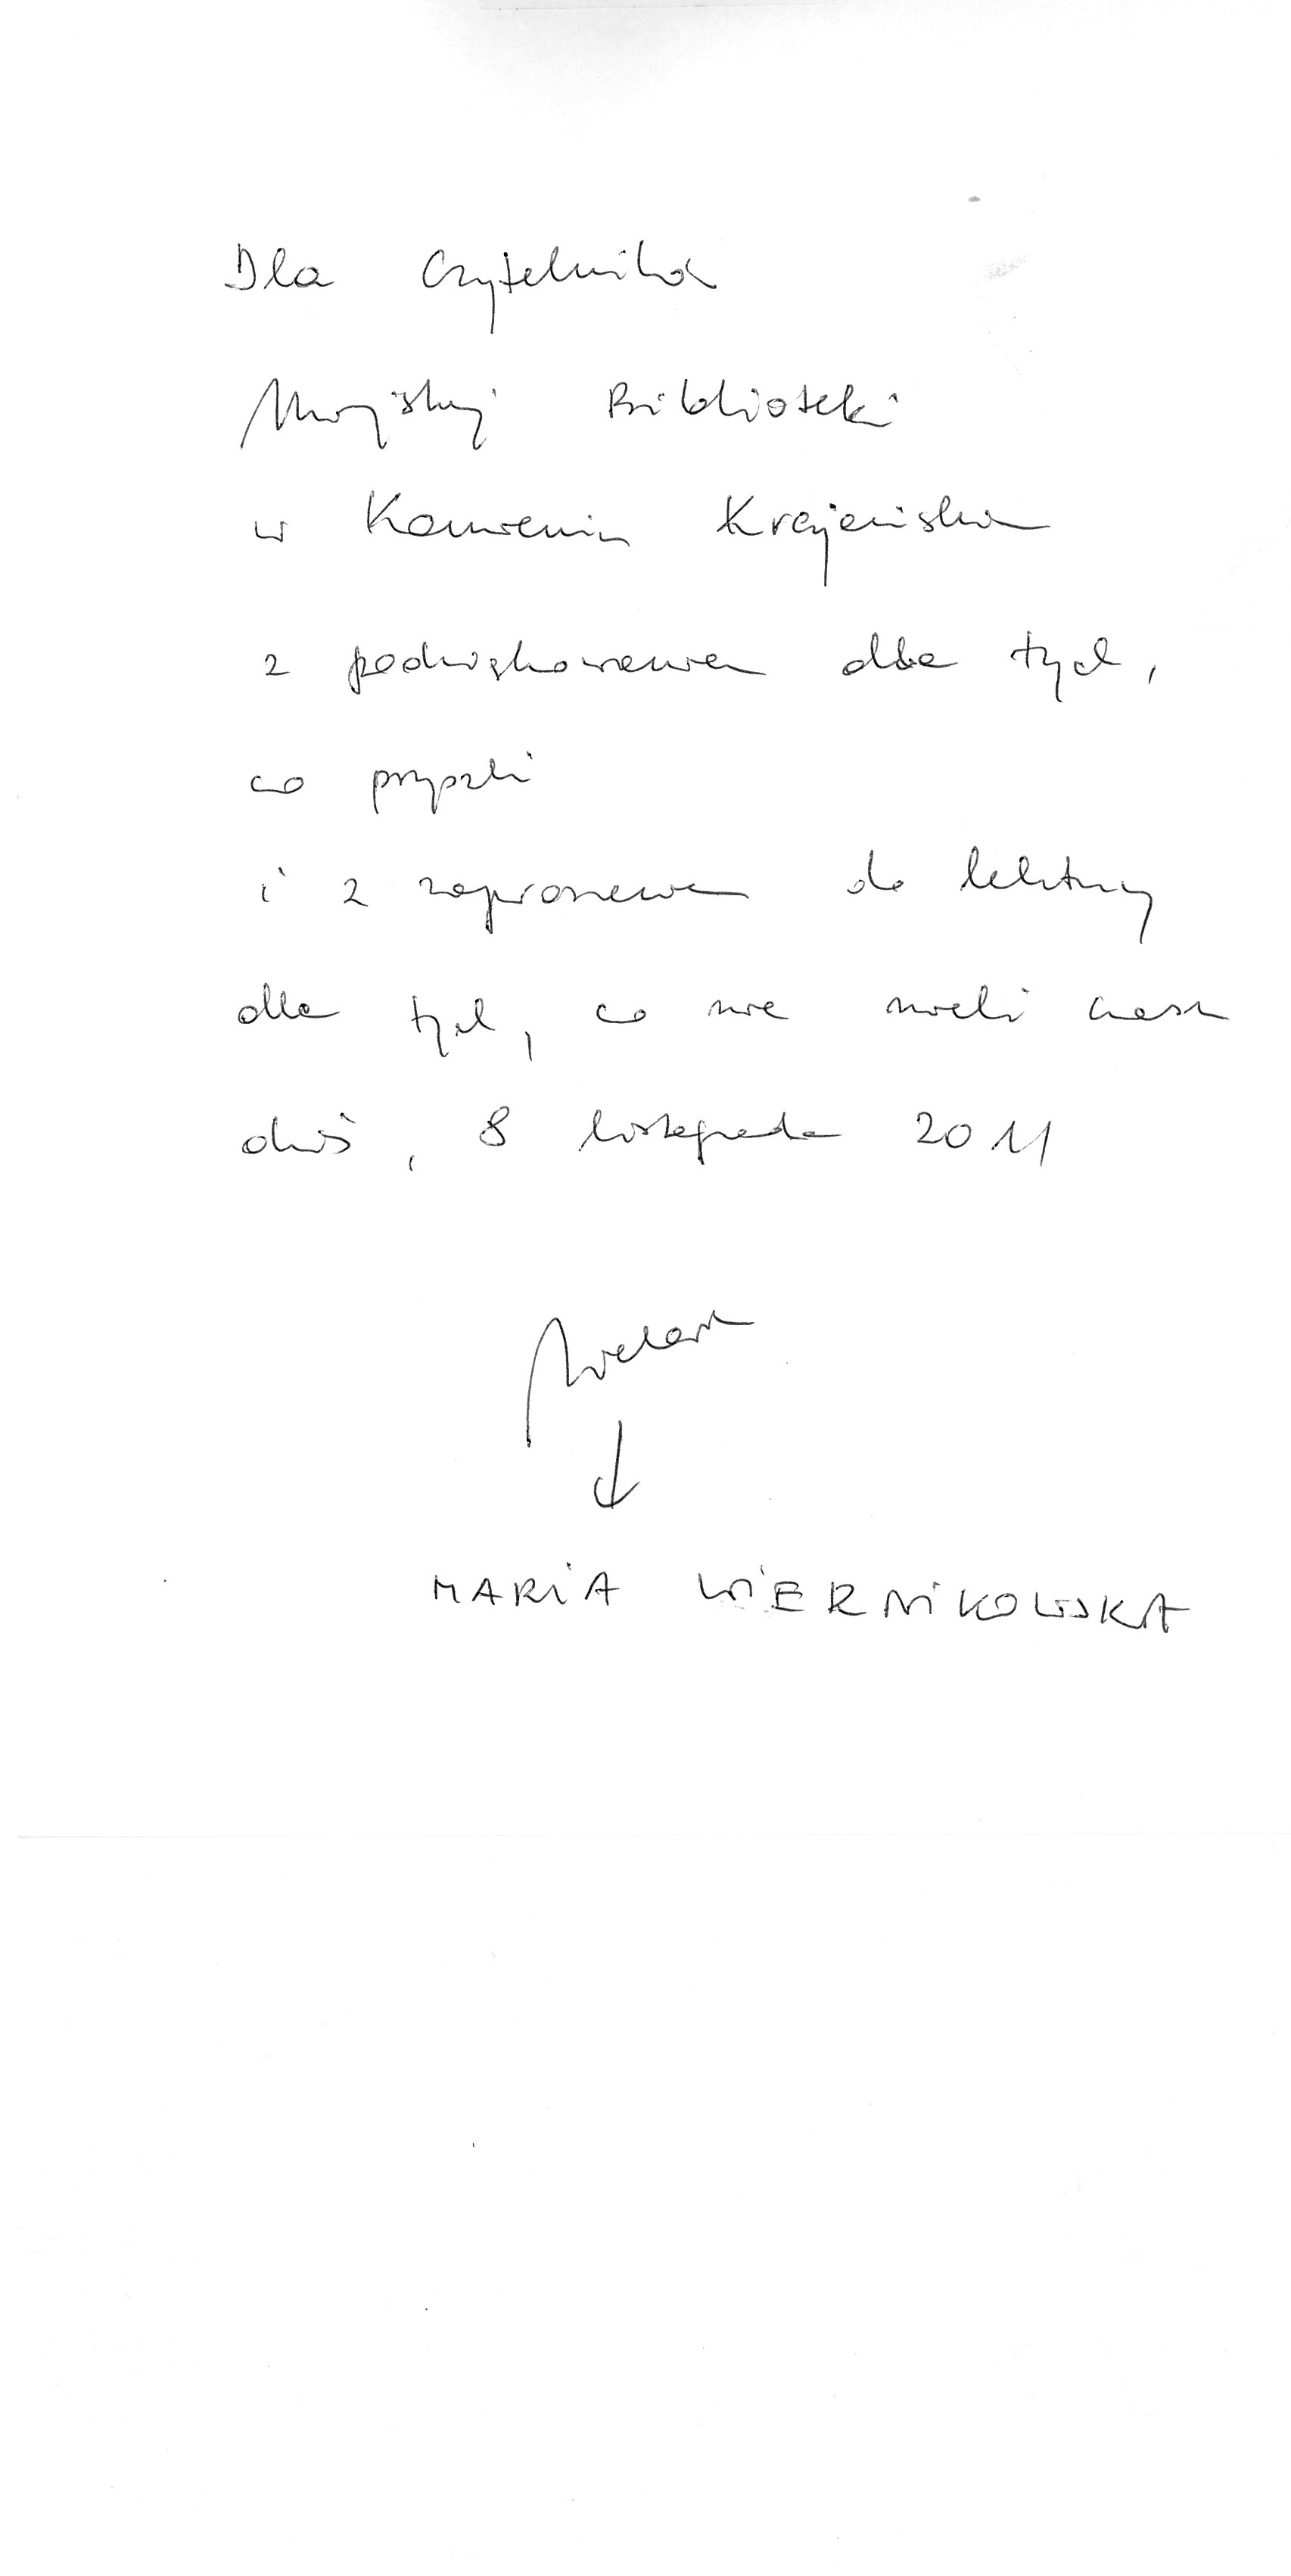 Dla Czytelnika
Miejskiej Biblioteki
w Kamieniu Krajeńskim
z podziękowaniem dla tych,
co przyszli
i z zaproszeniem do lektury
dla tych, co nie mieli czasu
dziś, 8 listopada 2011
MARIA WIERNIKOWSKA